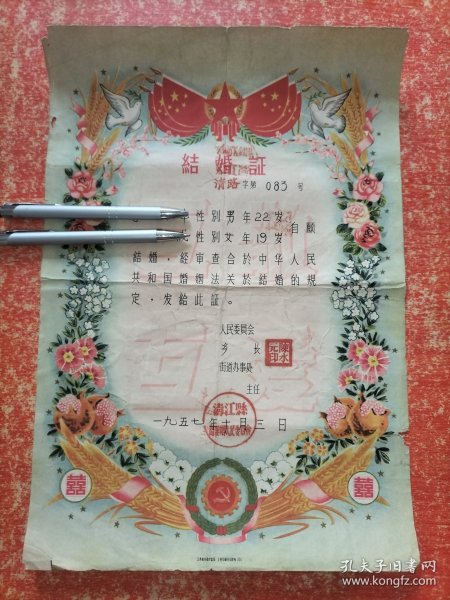 結婚証
清路字第 083 号
性別男年22岁
性別女年19岁 自願
結婚，経審查合於中华人民
共和国婚姻法关於結婚的規
定，发給此証。
人民委員会
乡 长
街道办事处
主任
清江縣
一九五七年十月三日
囍 囍
孔夫子旧书网
www.kongfz.com